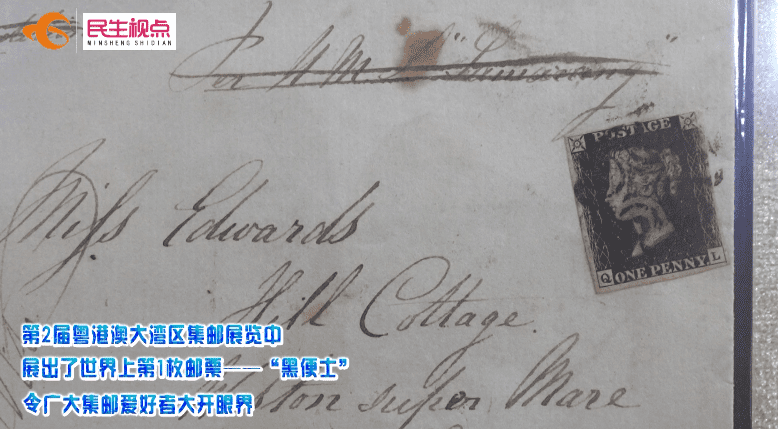 民生视点
MINSHENG SHIDIAN
Per H M S
Miss Edwards
Hill Cottage.
super Mare
POSTAGE
Q ONE PENNY L
第2届粤港澳大湾区集邮展览中
展出了世界上第1枚邮票——“黑便士”
令广大集邮爱好者大开眼界